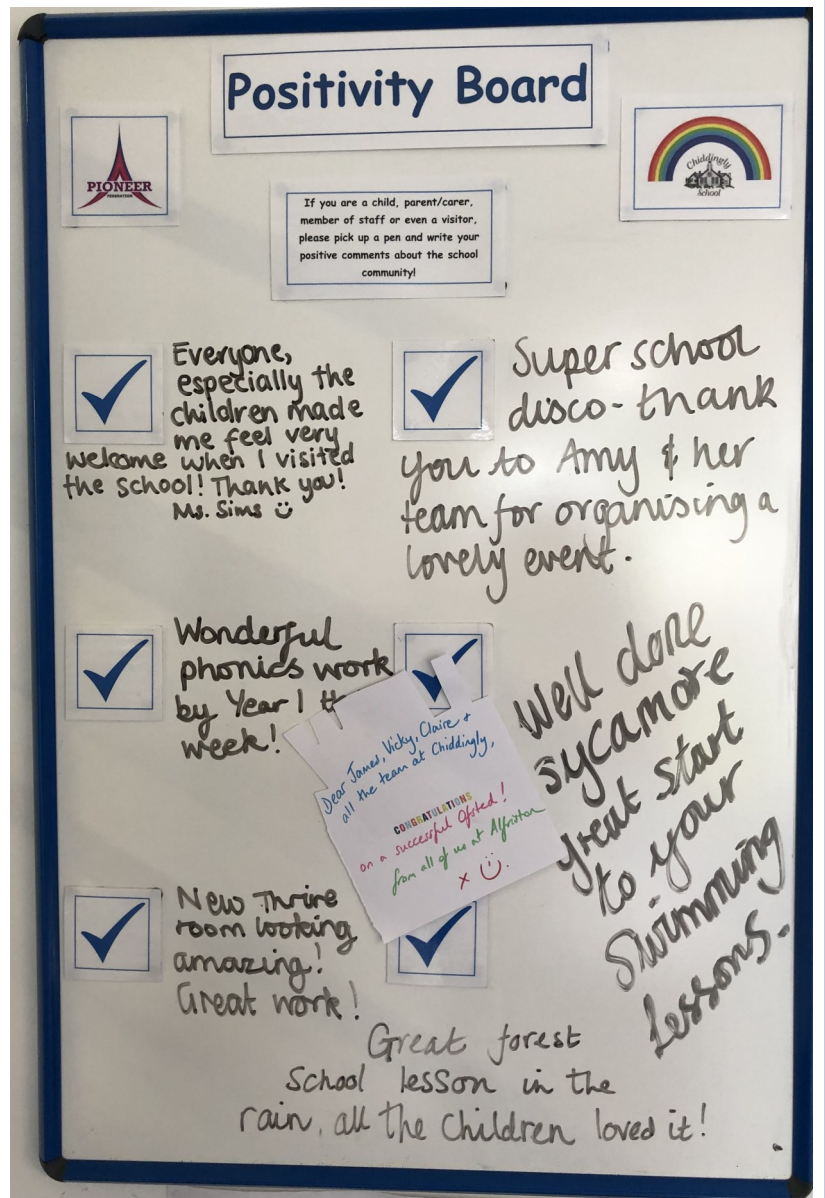 Positivity Board
PIONEER
FEDERATION
Chiddingly
School
If you are a child, parent/carer,
member of staff or even a visitor,
please pick up a pen and write your
positive comments about the school
community!
Everyone,
especially the
children made
me feel very
welcome when I visited
the school! Thank you!
Ms. Sims
Super school
disco - thank
you to Amy & her
team for organising a
lovely event.
Wonderful
phonics work
by Year 1
week!
Dear James, Vicky, Claire &
all the team at Chiddingly,
CONGRATULATIONS
on a successful Ofsted!
from all of us at Alfriston
x
Well done
sycamore
great start
to your
swimming
lessons.
New Thrive
room looking
amazing!
Great work!
Great forest
School lesson in the
rain, all the children loved it!